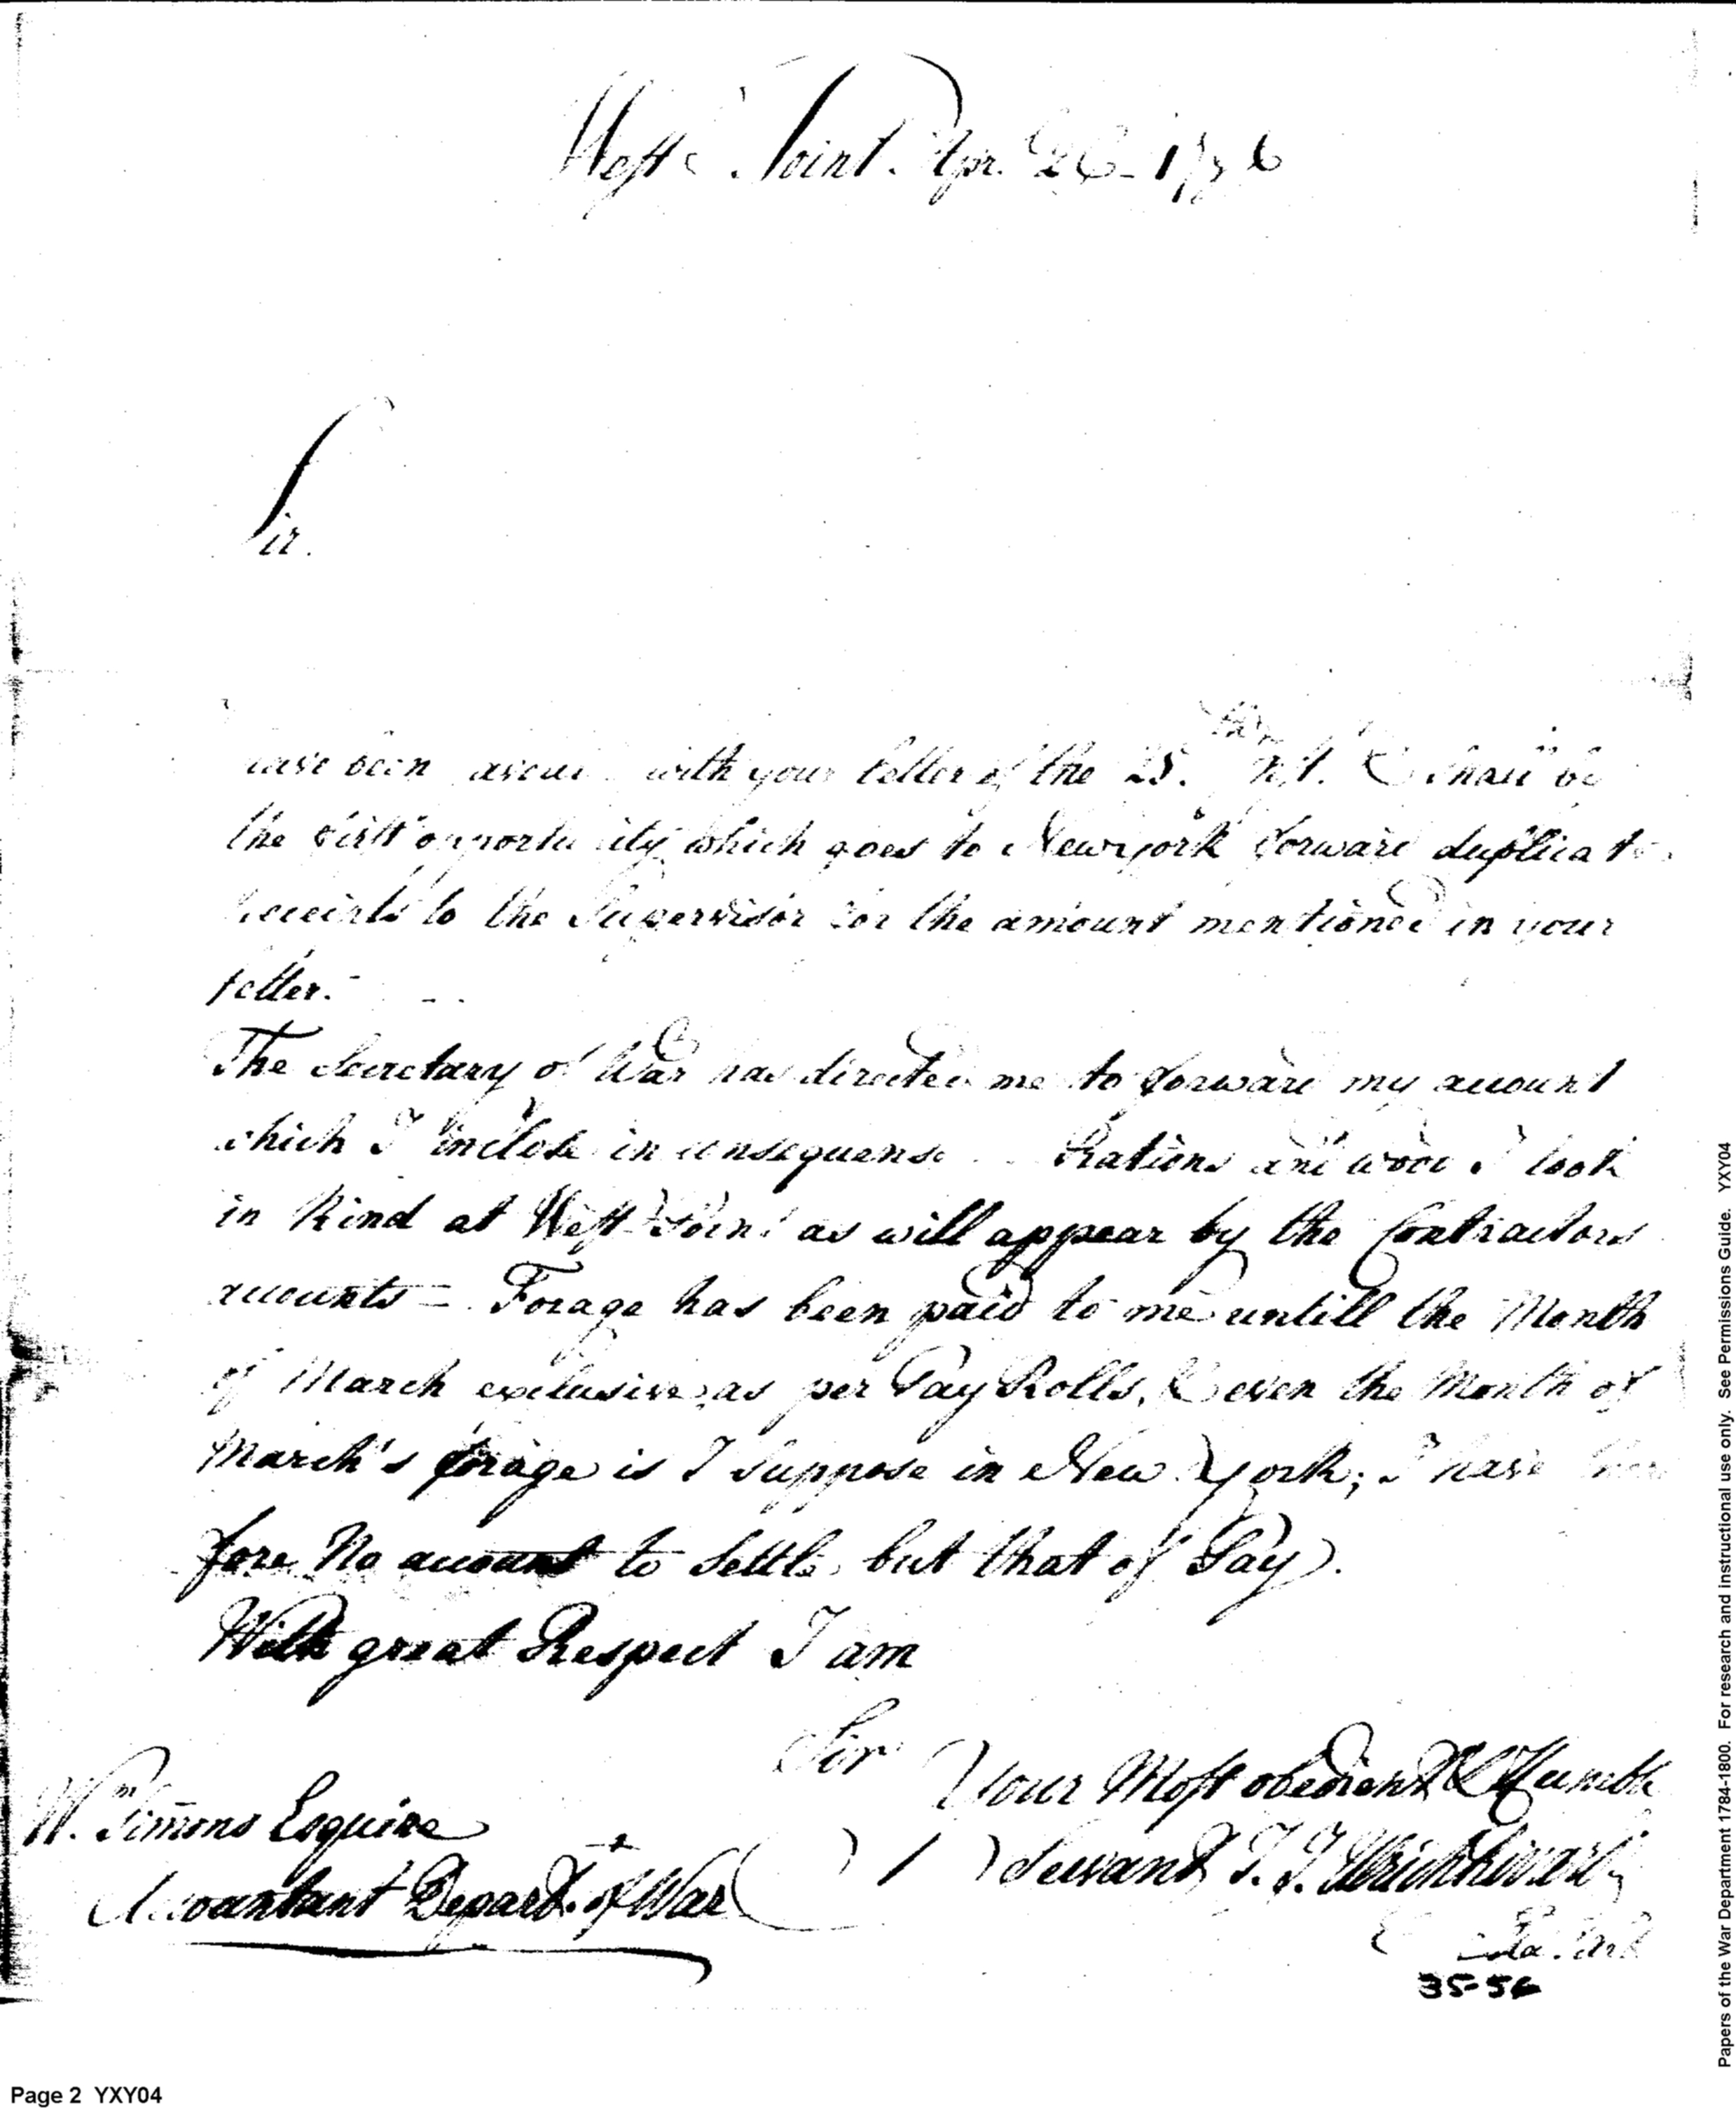 West Point. Apr. 26 - 1796
Sir.
have been with your letter of the 25. & shall by
the first opportunity which goes to Newyork forward duplicate
receipts to the Supervisor for the amount mentioned in your
letter. -
The Secretary of War has directed me to forward my account
which I inclose in consequense Rations and wood I took
in Kind at West Point as will appear by the Contractors
accounts = Forage has been paid to me untill the Month
of March exclusive as per Pay Rolls, & even the Month of
March's forage is I suppose in New York; I have there
fore No account to settle, but that of Pay.
With great Respect I am
Sir Your Most obedient & Humble
Servant J. J. Ulrich Rivardi
W. Simmons Esquire
Accountant Depart. of War
35-56
Page 2 YXY04
Papers of the War Department 1784-1800. For research and instructional use only. See Permissions Guide. YXY04